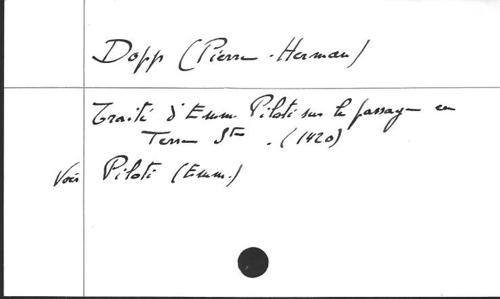 Dopp (Pierre-Herman)
Traité d'Emm. Piloti sur le passage en
Terre Ste. (1420)
Voir Piloti (Emm.)